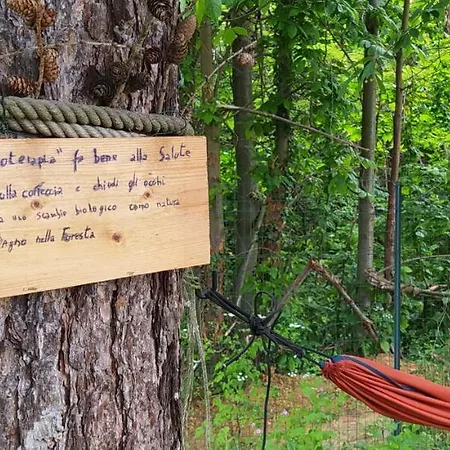 oterapia" fa bene alla Salute
alla corteccia e chiudi gli occhi
a uno scambio biologico con la natura
agno nella Foresta